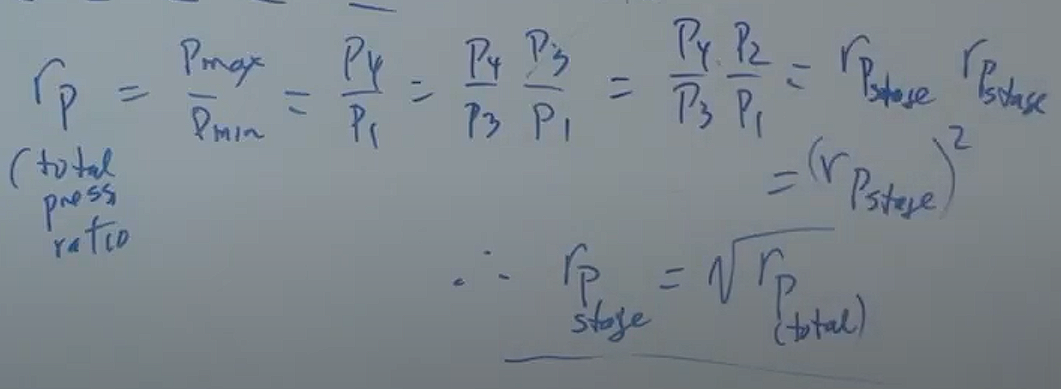 r_p = P_max/P_min = P_4/P_1 = P_4/P_3 P_3/P_1 = P_4/P_3 · P_2/P_1 = r_p_stage r_p_stage
(total
press
ratio
= (r_p_stage)^2
∴ r_p_stage = √r_p_(total)